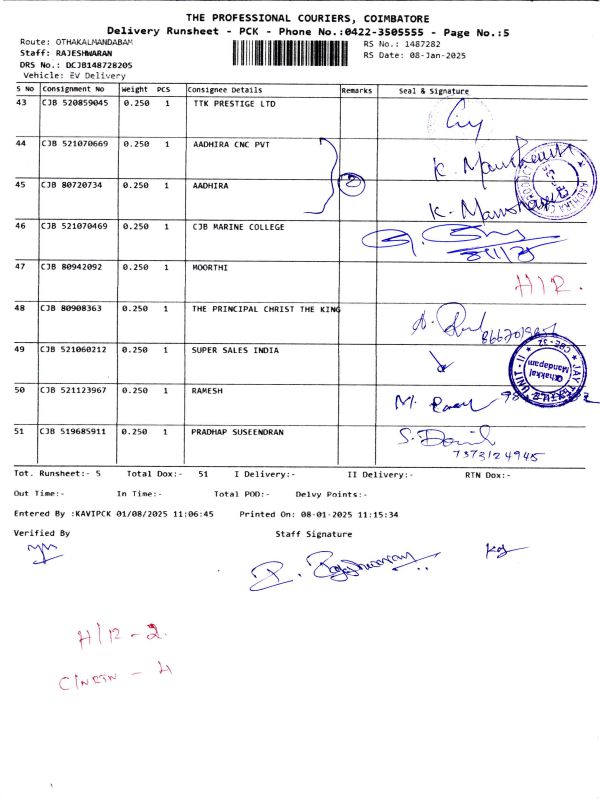 THE PROFESSIONAL COURIERS, COIMBATORE
Delivery Runsheet - PCK - Phone No.:0422-3505555 - Page No.:5
Route: OTHAKALMANDABAM
RS No.: 1487282
Staff: RAJESHWARAN
RS Date: 08-Jan-2025
DRS No.: DCJB148728205
Vehicle: EV Delivery
S No Consignment No Weight PCS Consignee Details Remarks Seal & Signature
43 CJB 520859045 0.250 1 TTK PRESTIGE LTD
44 CJB 521070669 0.250 1 AADHIRA CNC PVT
45 CJB 80720734 0.250 1 AADHIRA 2
46 CJB 521070469 0.250 1 CJB MARINE COLLEGE
47 CJB 80942092 0.250 1 MOORTHI H/R.
48 CJB 80908363 0.250 1 THE PRINCIPAL CHRIST THE KING
49 CJB 521060212 0.250 1 SUPER SALES INDIA
Othakkal Mandapam
50 CJB 521123967 0.250 1 RAMESH M.
51 CJB 519685911 0.250 1 PRADHAP SUSEENDRAN S.
7373124945
Tot. Runsheet:- 5 Total Dox:- 51 I Delivery:- II Delivery:- RTN Dox:-
Out Time:- In Time:- Total POD:- Delvy Points:-
Entered By :KAVIPCK 01/08/2025 11:06:45 Printed On: 08-01-2025 11:15:34
Verified By Staff Signature
H/R - 2.